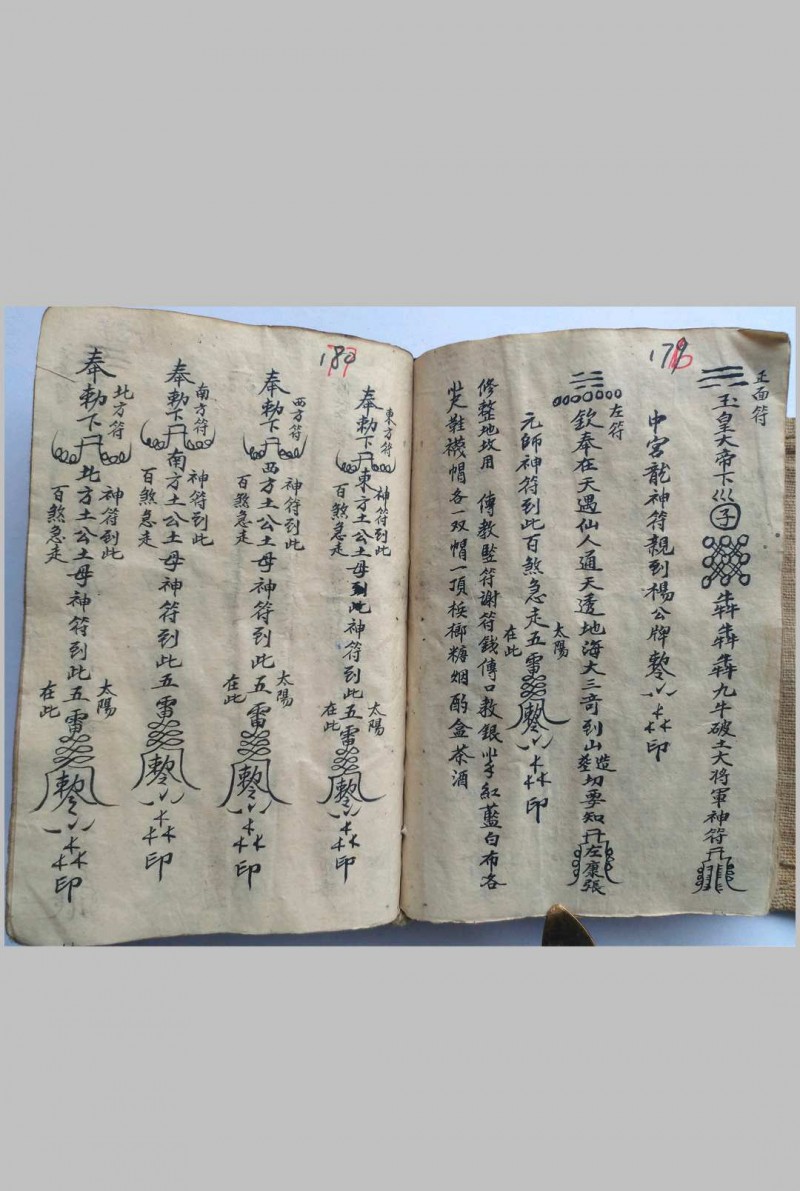 179
正面符
玉皇大帝下巛子犇犇犇九牛破土大将軍神符
中宮龍神符親到楊公牌
印
左符
欽奉在天遇仙人通天透地海大三奇到山造塟切要知左康張
元師神符到此百煞急走五雷
太陽
在此
印
修整地坟用 傳教監符謝符錢傳口教銀 紅藍白布各
鞋襪帽各一双帽一頂 榔糖烟酌盒茶酒
180
東方符
奉勅下東方土公土母到此神符到此五雷
神符到此
百煞急走
太陽
在此
印
西方符
奉勅下西方土公土母神符到此五雷
神符到此
百煞急走
太陽
在此
印
南方符
奉勅下南方土公土母神符到此五雷
神符到此
百煞急走
印
北方符
奉勅下北方土公土母神符到此五雷
神符到此
百煞急走
太陽
在此
印